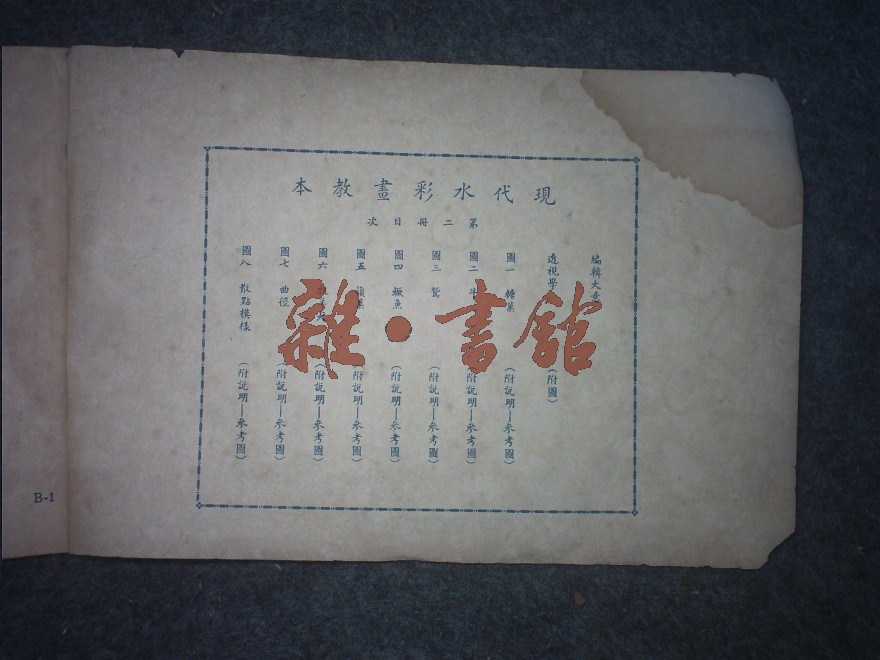 現代水彩畫教本
第二冊目次
編輯大意
透視學 (附圖)
圖一 糖菓 (附說明—參考圖)
圖二 牛 (附說明—參考圖)
圖三 鵞 (附說明—參考圖)
圖四 鱖魚 (附說明—參考圖)
圖五 (附說明—參考圖)
圖六 (附說明—參考圖)
圖七 曲径 (附說明—參考圖)
圖八 散點模樣 (附說明—參考圖)
雜·書館
B-1